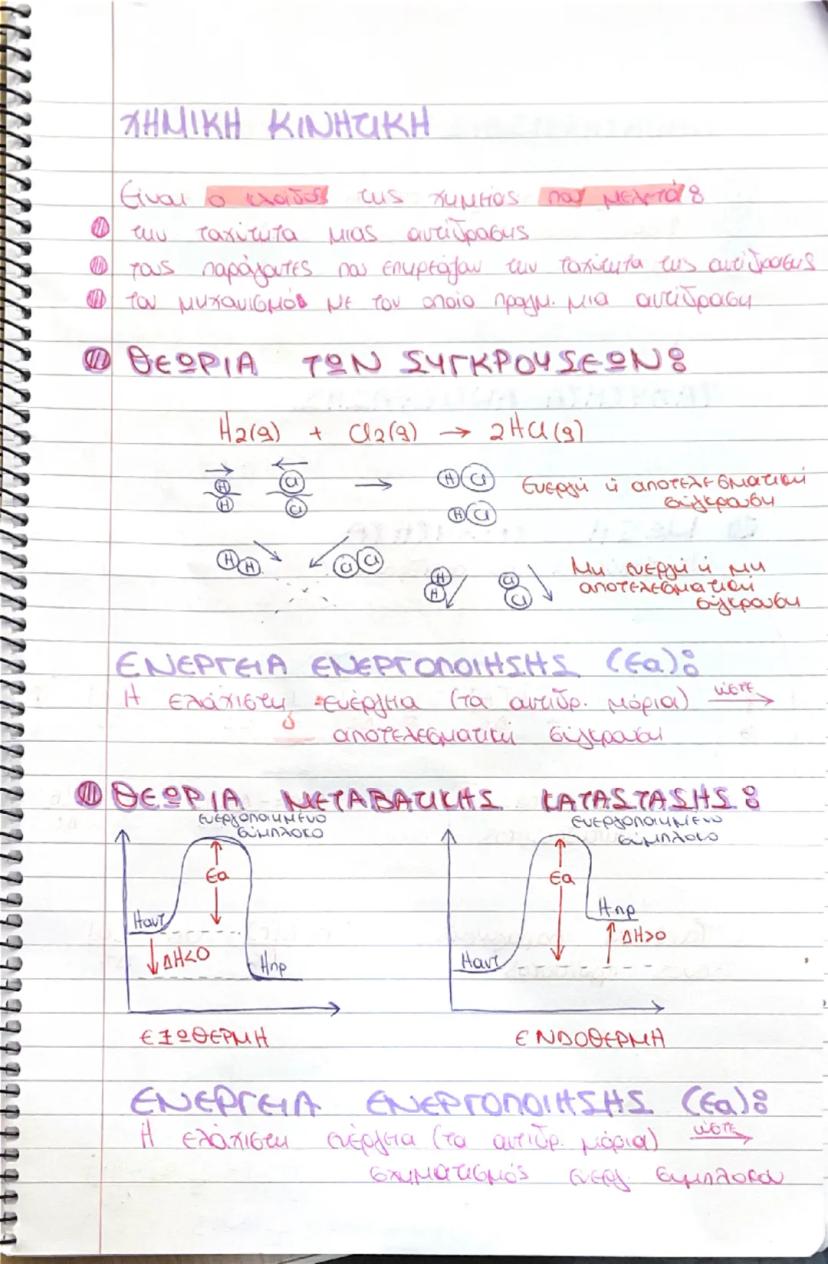 ΧΗΜΙΚΗ ΚΙΝΗΤΙΚΗ
Είναι ο κλάδος της χημείας που μελετά:
την ταχύτητα μιας αντίδρασης
τους παράγοντες που επηρεάζουν την ταχύτητα της αντίδρασης
τον μηχανισμό με τον οποίο πραγμ. μια αντίδραση
ΘΕΩΡΙΑ ΤΩΝ ΣΥΓΚΡΟΥΣΕΩΝ:
H2(g) + Cl2(g) → 2HCl(g)
H Cl → H Cl ενεργή ή αποτελεσματική
H Cl H Cl σύγκρουση
H H Cl Cl H Cl Μη ενεργή ή μη
H Cl αποτελεσματική
σύγκρουση
ΕΝΕΡΓΕΙΑ ΕΝΕΡΓΟΠΟΙΗΣΗΣ (Εa):
Η ελάχιστη ενέργεια (τα αντιδρ. μόρια) ώστε →
αποτελεσματική σύγκρουση
ΘΕΩΡΙΑ ΜΕΤΑΒΑΤΙΚΗΣ ΚΑΤΑΣΤΑΣΗΣ:
ενεργοποιημένο σύμπλοκο
Εa
Hαντ
ΔH<0
Hπρ
ΕΞΩΘΕΡΜΗ
ενεργοποιημένο σύμπλοκο
Εa
Hπρ
ΔH>0
Hαντ
ΕΝΔΟΘΕΡΜΗ
ΕΝΕΡΓΕΙΑ ΕΝΕΡΓΟΠΟΙΗΣΗΣ (Εa):
Η ελάχιστη ενέργεια (τα αντιδρ. μόρια) ώστε →
σχηματισμός ενεργ. συμπλόκου